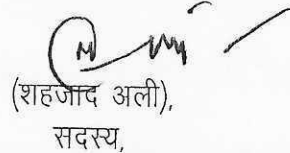 (शहजाद अली),
सदस्य,